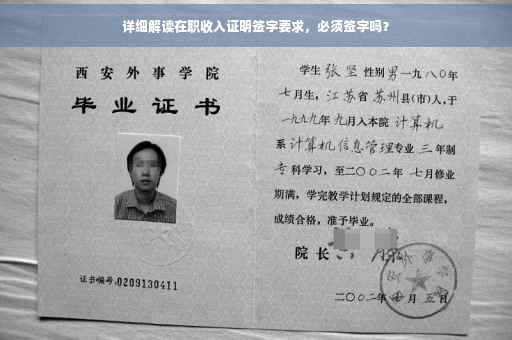 详细解读在职收入证明签字要求，必须签字吗？
西安外事学院
毕业证书
证书编号:0209130411
学生 张坚 性别 男 一九八〇年
七月生, 江苏省 苏州县(市)人,于
一九九九年 九月入本院 计算机
系 计算机信息管理专业 三 年制
专科学习, 至二〇〇二年 七月修业
期满, 学完教学计划规定的全部课程,
成绩合格, 准予毕业。
院长
二〇〇二年 月 五日